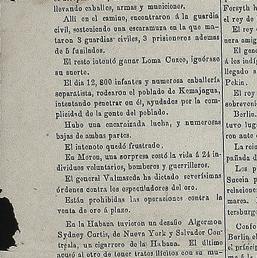 llevando caballes, armas y municiones.
Allí en el camino, encontraron á la guardia
civil, sosteniendo una escaramuza en la que ma-
taron 8 guardias civiles, 3 prisioneros ademas
de 5 fusilados.
El resto intentó ganar Loma Corzo, ignórase
su suerte.
El dia 12, 800 infantes y numerosa caballería
separatista, rodearon el poblado de Kemajagua,
intentando penetrar en él, ayudados por la com-
plicidad de la gente del poblado.
Hubo una encarnizada lucha, y numerosas
bajas de ambas partes.
El intento quedó frustrado.
En Moron, una sorpresa costó la vida á 24 in-
dividuos voluntarios, bomberos y guerrilleros.
El general Valmaseda ha dictado severísimas
órdenes contra los especuladores del oro.
Están prohibidas las operaciones contra la
venta de oro á plazo.
En la Habana tuvieron un desafio Algernon
Sydney Curtis, de Nueva York y Salvador Con-
, un cigarrero de la Habana. El último
acusó al otro de tener tratos ilícitos con su mu-
Forsyth h
el rey de
El rey
nera amig
El gene
á los indíg
llegado a
Pekin.
El rey
sobreveni
Berlin.
tuvo lug
española
La rei
pañada d
Los p
Suecia p
relsciones
marca.
tersburgo
Confe
Berlin, el